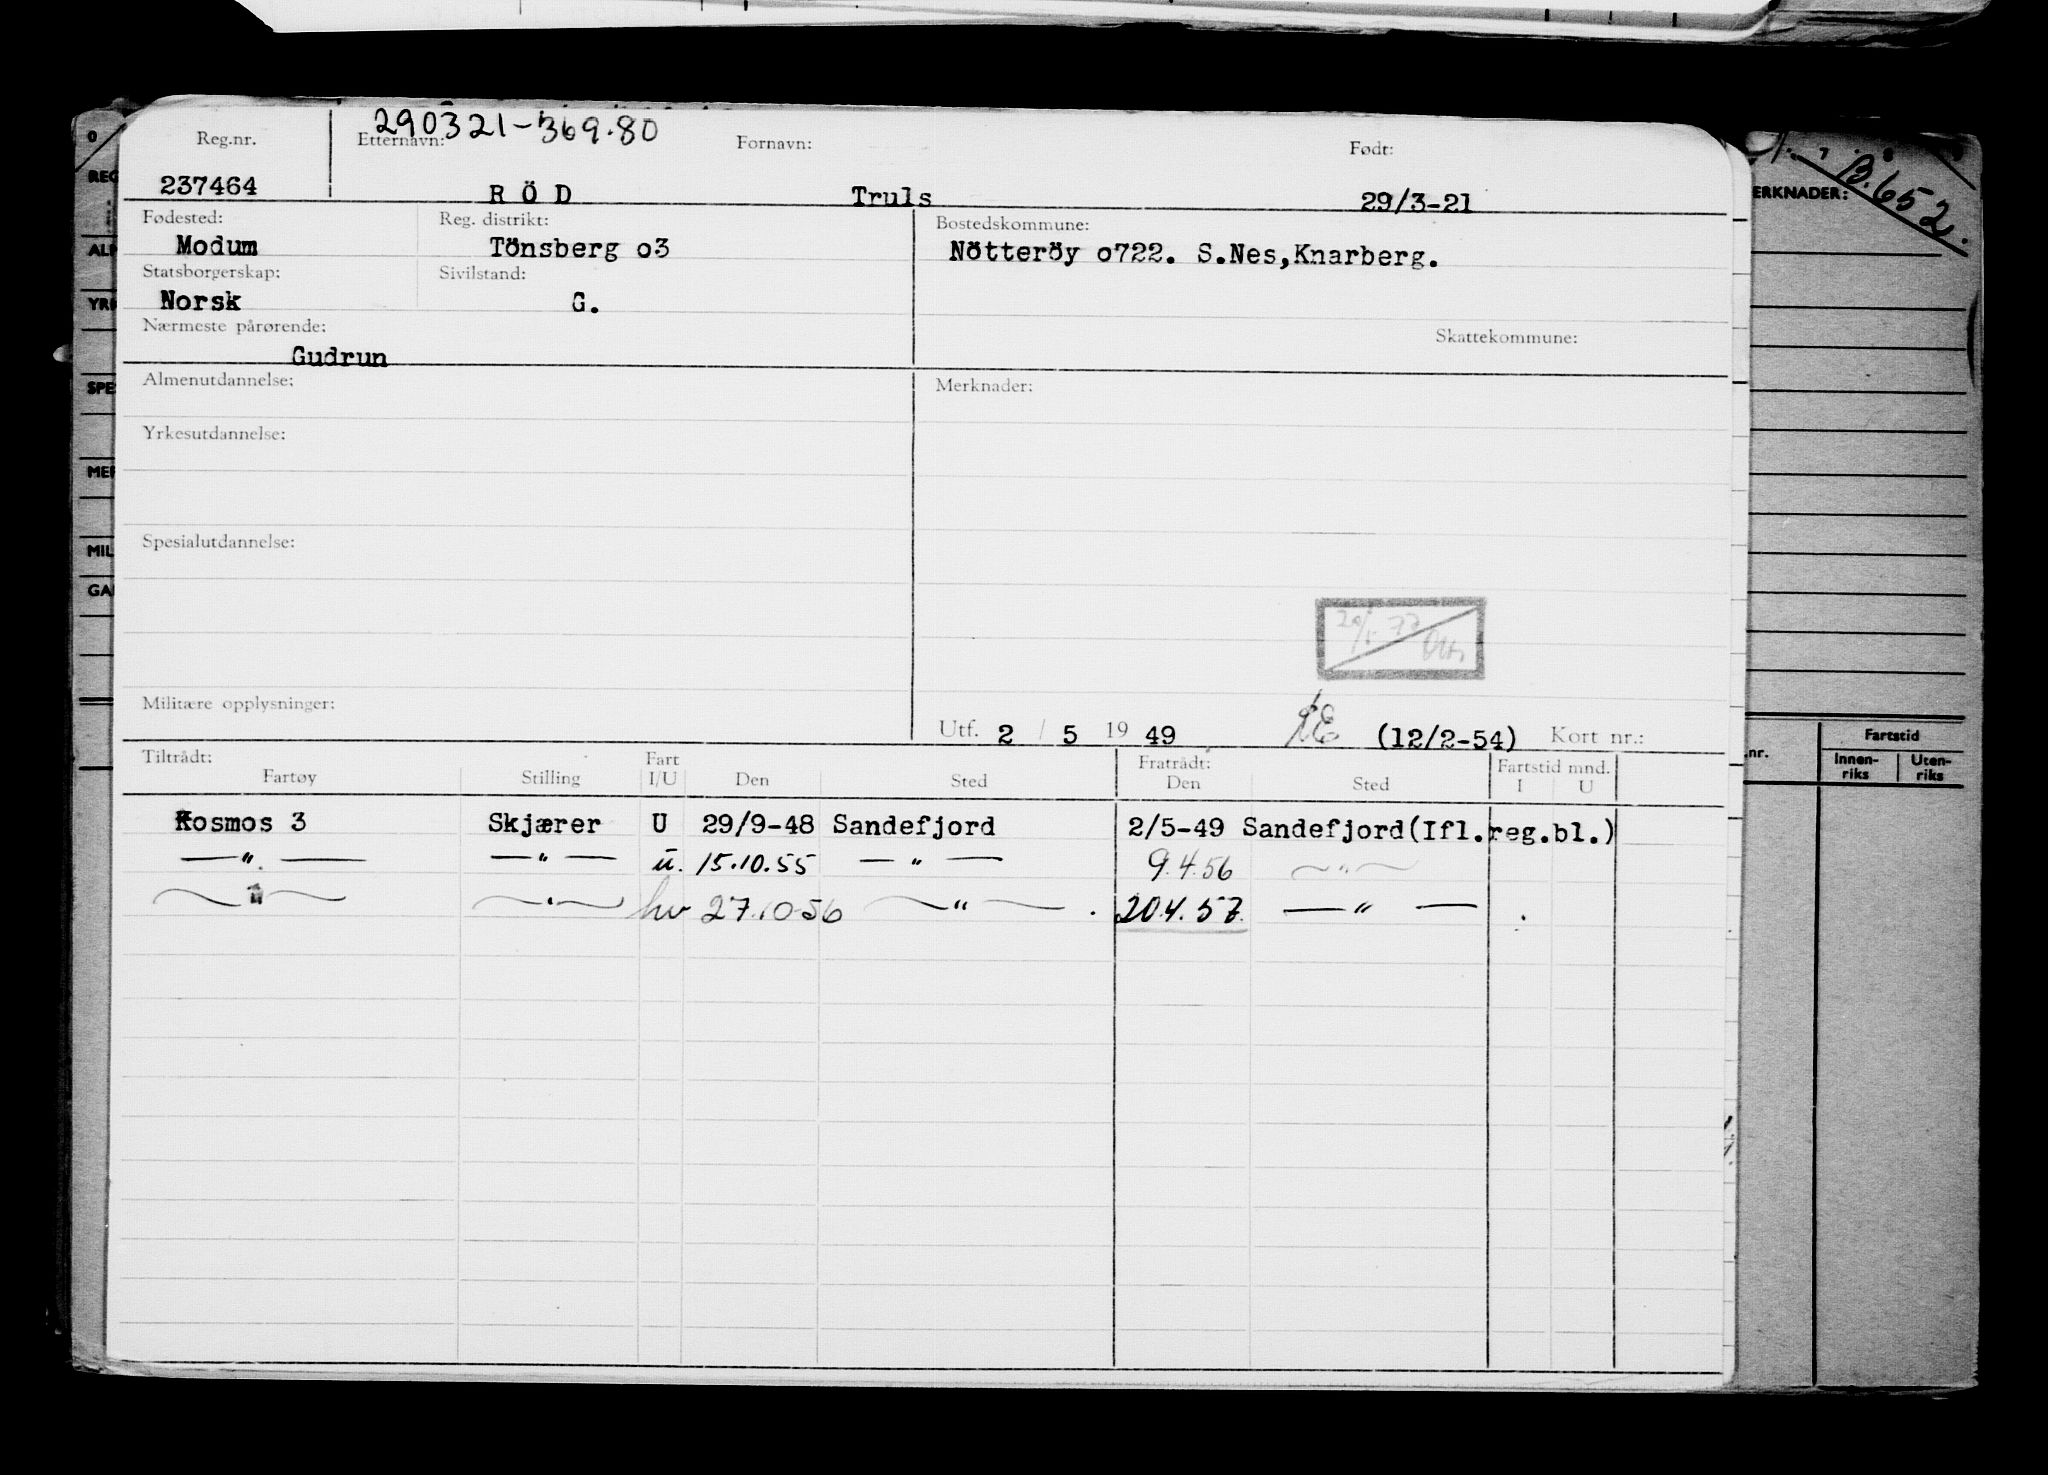 290321-369.80
Reg.nr. Etternavn: Fornavn: Født:
237464 RÖD Truls 29/3-21
Fødested: Reg. distrikt: Bostedskommune:
Modum Tönsberg o3 Nötteröy o722. S.Nes,Knarberg.
Statsborgerskap: Sivilstand:
Norsk G.
Nærmeste pårørende: Skattekommune:
Gudrun
Almenutdannelse: Merknader:
Yrkesutdannelse:
Spesialutdannelse:
Militære opplysninger:
Utf. 2 / 5 19 49 (12/2-54) Kort nr.:
Tiltrådt: Fart Fratrådt: Fartstid mnd.
Fartøy Stilling I/U Den Sted Den Sted I U
Kosmos 3 Skjærer U 29/9-48 Sandefjord 2/5-49 Sandefjord(Ifl.reg.bl.)
—"— —"— u. 15.10.55 —"— 9.4.56 —"—
—"— —"— hv 27.10-56 —"— 20.4.57. —"—
ERKNADER: 13.652.
.nr. Fartstid
Innen-riks Uten-riks
0
REG
ALM
YRK
SPES
MER
MIL
GAR